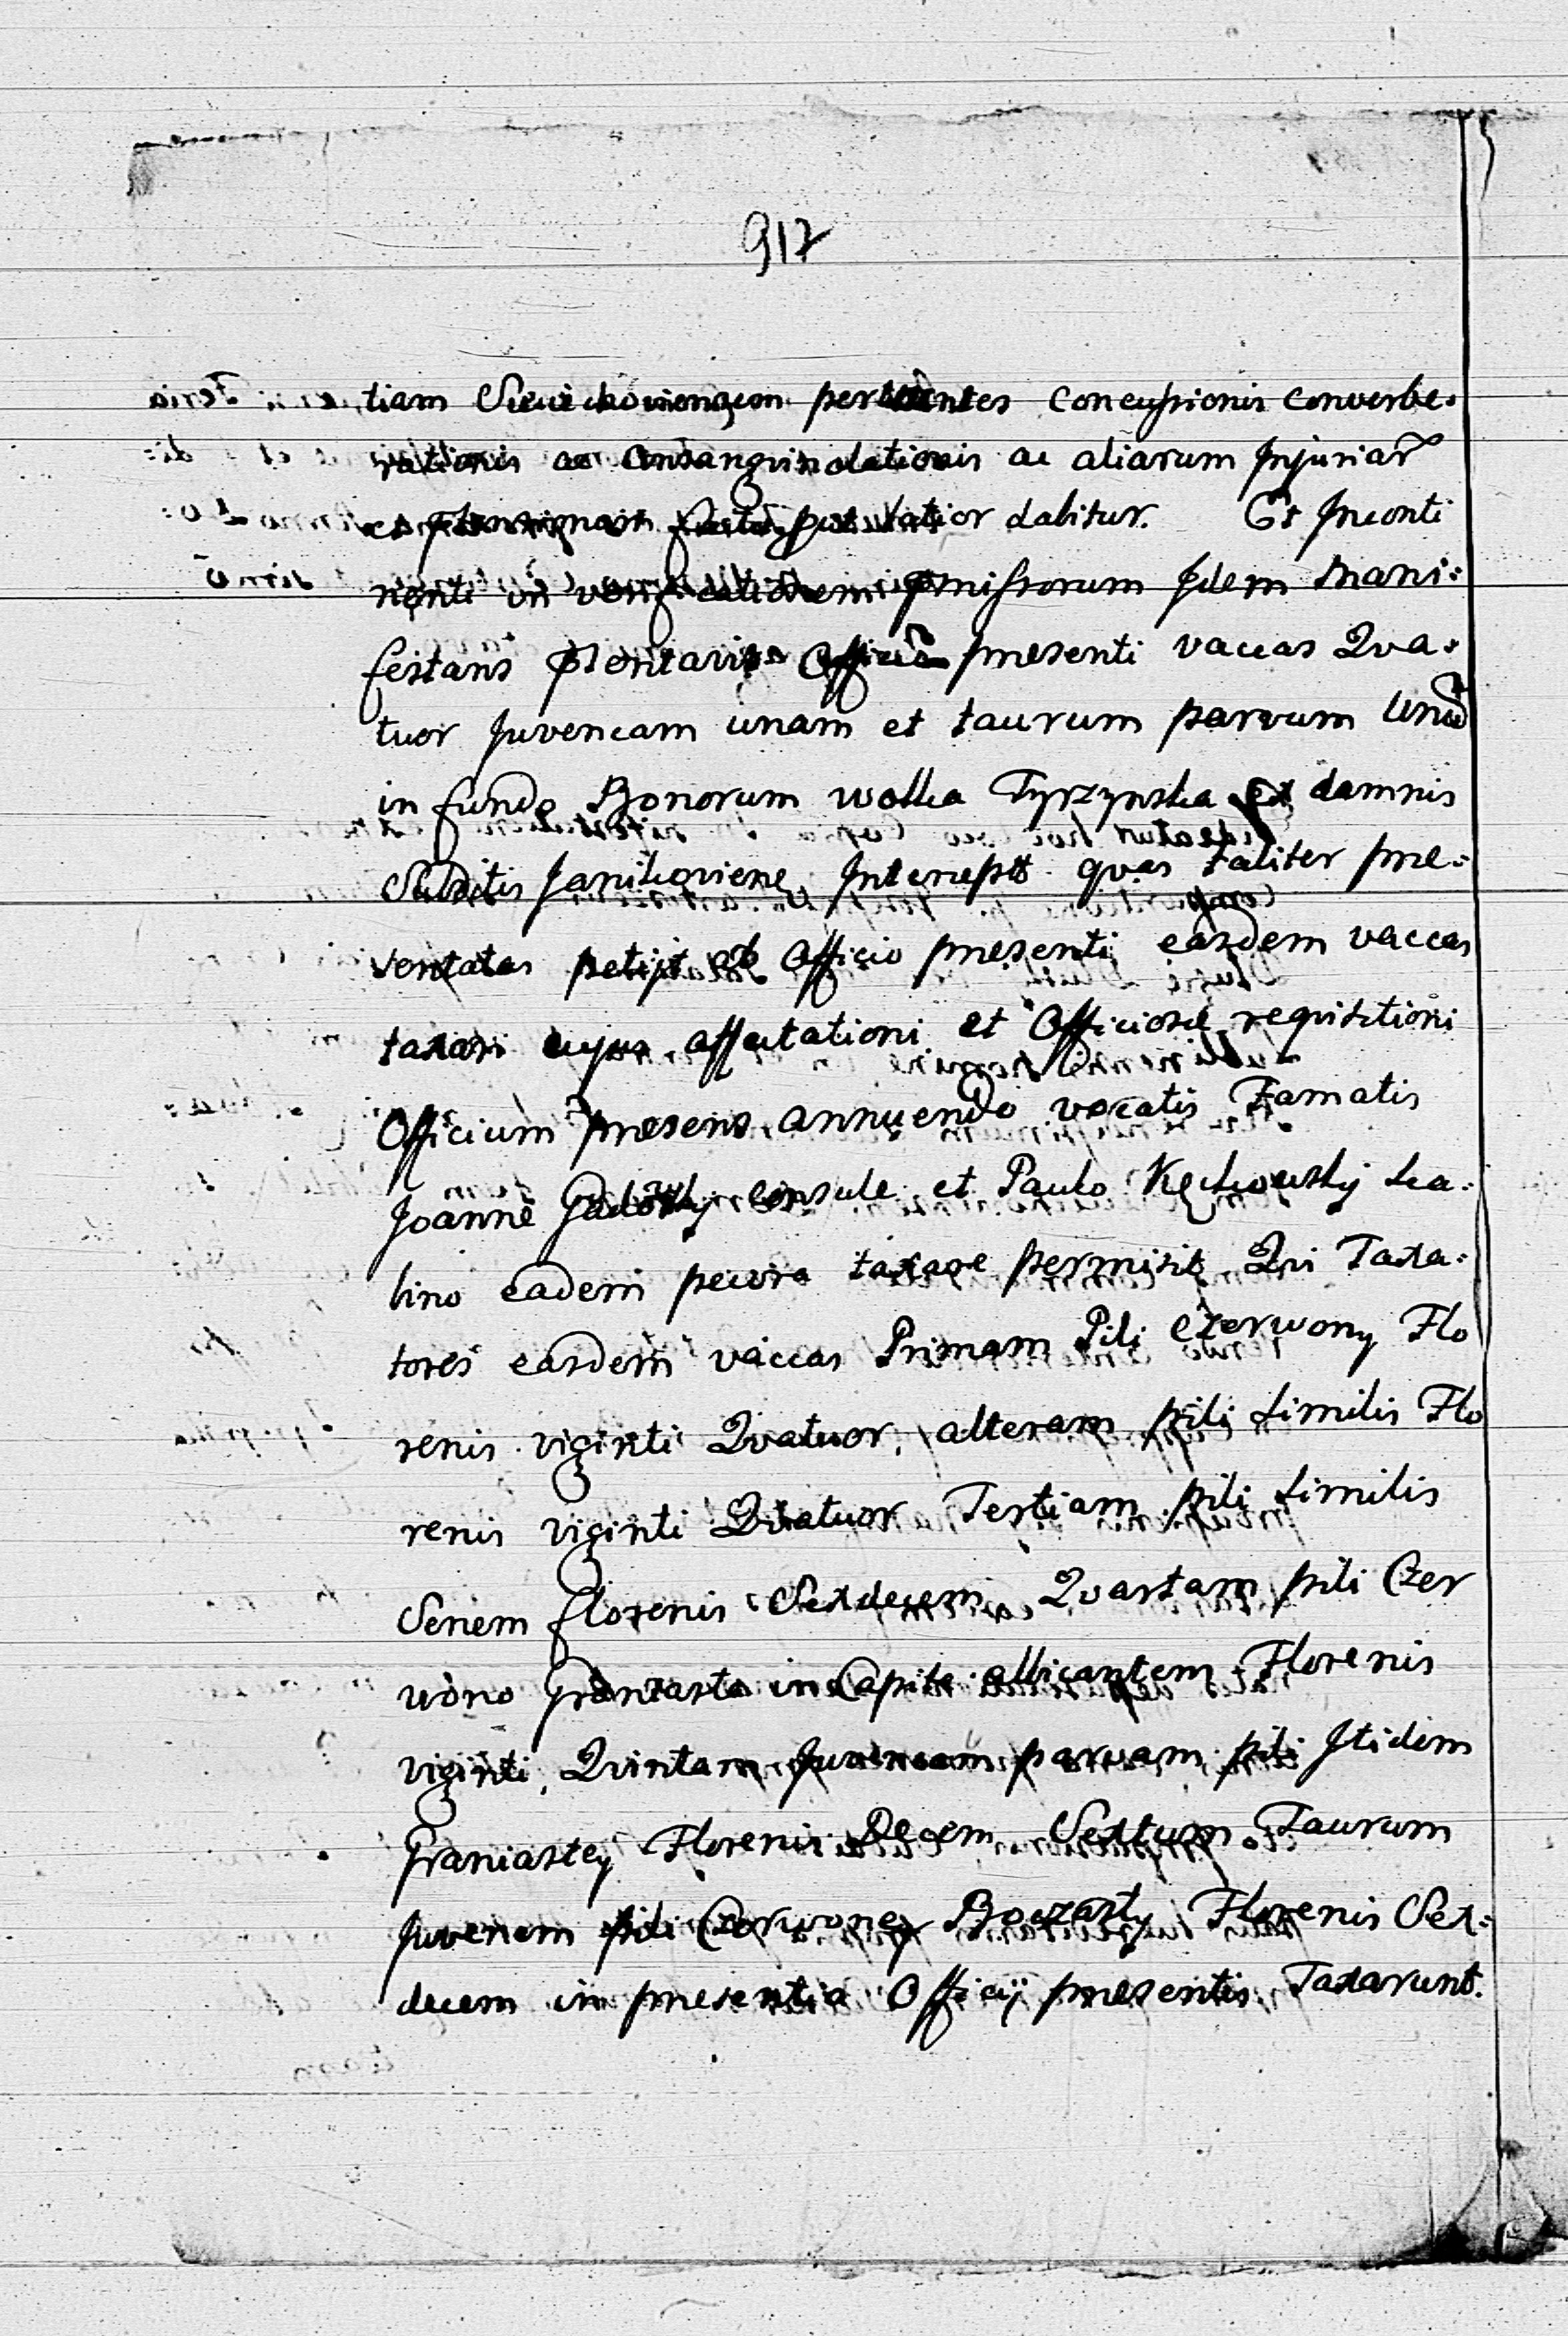 917
tiam Sieciechoviensem pertinentes concussionis conversbe=
rationis ac consangvinolationis ac aliarum Injuriar
dabitur. Et Inconti
nenti in verificationem pmissorum Idem Mani=
festans pntavit Officio presenti vaccas Qva=
tuor Juvencam unam et taurum parvum Unū
in fundo Bonorum wolka Tyrzynska damnis
Subditis Janikoviens Intercept qvas taliter pre=
sentatas petijt ab Officio presenti easdem vaccas
taxari cujus affectationi et Officiosæ reqvisitioni
Officium presens annuendo vocatis Famatis
Joanne consule et Paulo Kęchowsky Sca=
bino eadem pecora taxare permisit Qvi Taxa=
tores easdem vaccas Primam Pili Czerwony Flo
renis viginti Qvatuor, alteram pili similis Flo
renis viginti Qvatuor Tertiam pili similis
Senem florenis Sexdecem Qvartam pili Czer
wono Graniasta in Capite albicantem Florenis
viginti, Qvintam Juvencam parvam pili Itidem
Graniastey Florenis Decem Sextum Taurum
Juvenem pili Czerwoney Boczasty Florenis Sex=
decem in presentia Officÿ presentis Taxarunt.